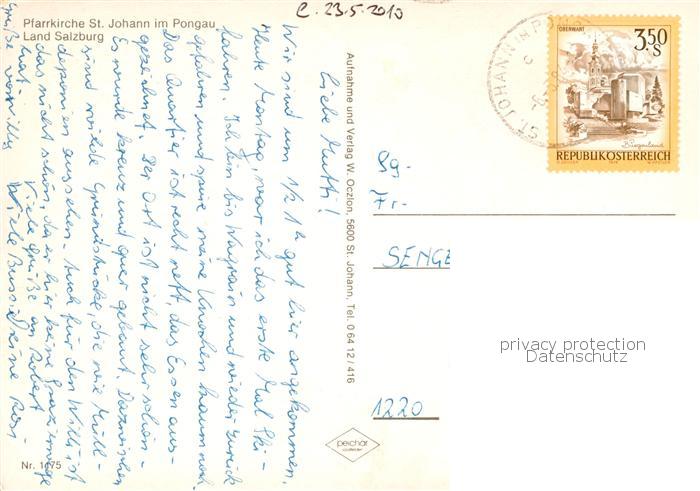 Pfarrkirche St. Johann im Pongau
Land Salzburg
C. 23.5.2010
Liebe Mutti!
Wir sind um 1/2 1h gut hier angekommen.
Heute Montag, war ich das erste Mal Ski-
fahren. Ich bin bis Wagrain und wieder zurück
gefahren und spüre meine Knochen kaum noch.
Das Quartier ist recht nett, das Essen aus-
gezeichnet. Der Ort ist nicht sehr schön.
Es wurde kreuz und quer gebaut. Dazwischen
sind wilde Grundstücke, die wie Müll-
deponien aussehen. Auch für den Willi ist
das nicht schön, da er hier keine
hat. Viele Grüße an Robert
Grüße von Willy Viele Bussi Deine
Nr. 1175
Aufnahme und Verlag W. Oczlon, 5600 St. Johann, Tel. 0 64 12 / 416
peichär
ST. JOHANN IM PONGAU
OBERWART
3.50
S
Burgenland
REPUBLIK ÖSTERREICH
Fr.
SENGE
1220
privacy protection
Datenschutz